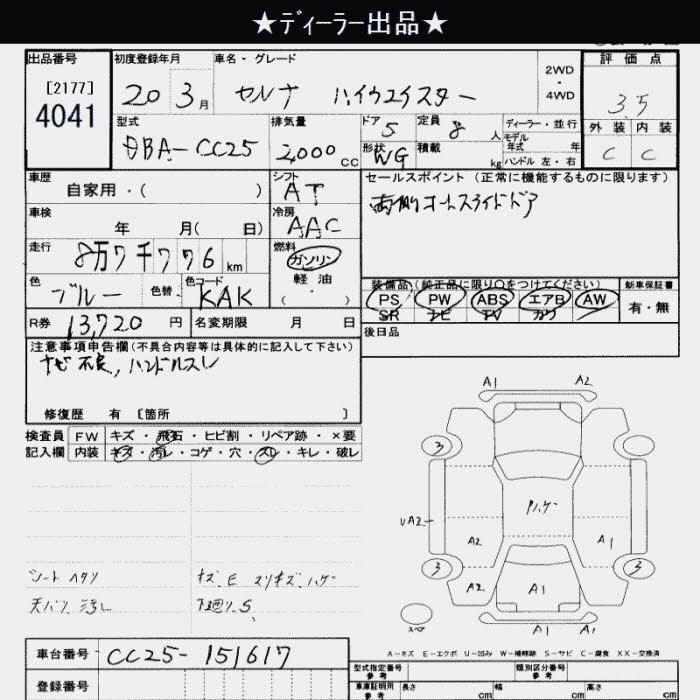 ★ディーラー出品★
出品番号
[2177]
4041
初度登録年月
20 3月
車名・グレード
セレナ ハイウエイスター
2WD
・
4WD
評価点
3.5
外装 内装
C C
型式
DBA-CC25
排気量
2,000cc
ドア 5
定員 8人
形状 WG
積載 kg
ディーラー・並行
モデル年式 年
ハンドル 左・右
車歴
自家用・( )
シフト
AT
セールスポイント(正常に機能するものに限ります)
両側オートスライドドア
車検
年 月( 日)
冷房
AAC
走行
8万7千776km
燃料
ガソリン
軽油
( ・ )
色
ブルー
色替
色コード
KAK
装備品(純正品に限り○をつけてください)
PS PW ABS エアB AW
SR ナビ TV カワ
新車保証書
有・無
R券 13,720円
名変期限 月 日
後日品
注意事項申告欄(不具合内容等は具体的に記入して下さい)
ナビ不良,ハンドルスレ
修復歴 有 [箇所 ]
検査員 FW キズ・飛石・ヒビ割・リペア跡・×要
記入欄 内装 キズ・汚レ・コゲ・穴・スレ・キレ・破レ
A1 A2
3
Pハゲ
UA2
A2 A1
3 3
A2 A1
スペア
A1 A1
シートヘタリ
天バリ汚レ
キズ、E スリキズ、ハゲ
下廻り、S
A-キズ E-エクボ U-凹み W-補修跡 S-サビ C-腐食 XX-交換済
車台番号 CC25-151617
登録番号
型式指定番号
参考
類別区分番号
参考
車庫証明用
参考
長さ cm
幅 cm
高さ cm